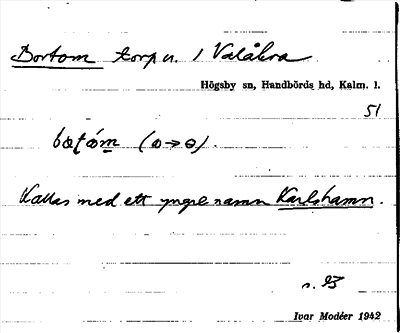 Bortom torp u. / Valåkra
Högsby sn, Handbörds hd, Kalm. l.
51
Kallas med ett yngre namn Karlshamn.
s. 93
Ivar Modéer 1942